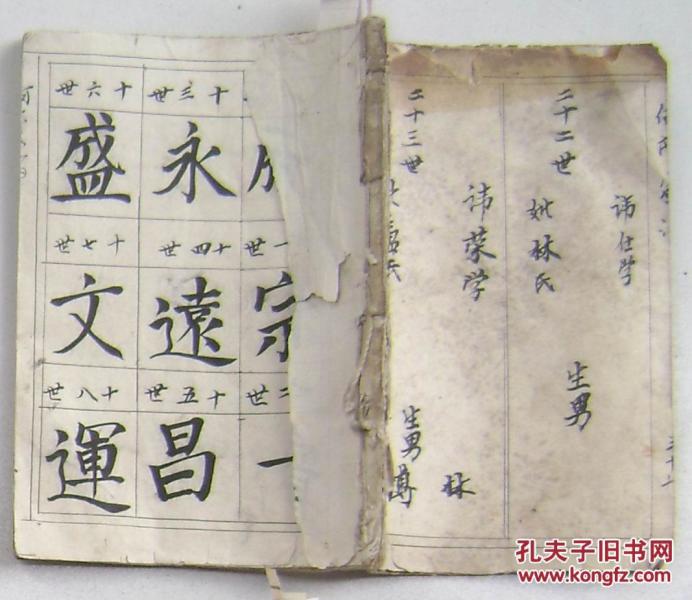 讳仕学
二十二世
妣林氏
生男
讳荣学
二十三世
氏
生男
林
三十
十三世
永
十四世
遠
十五世
昌
十六世
盛
十七世
文
十八世
運
宗
一
孔夫子旧书网
www.kongfz.com